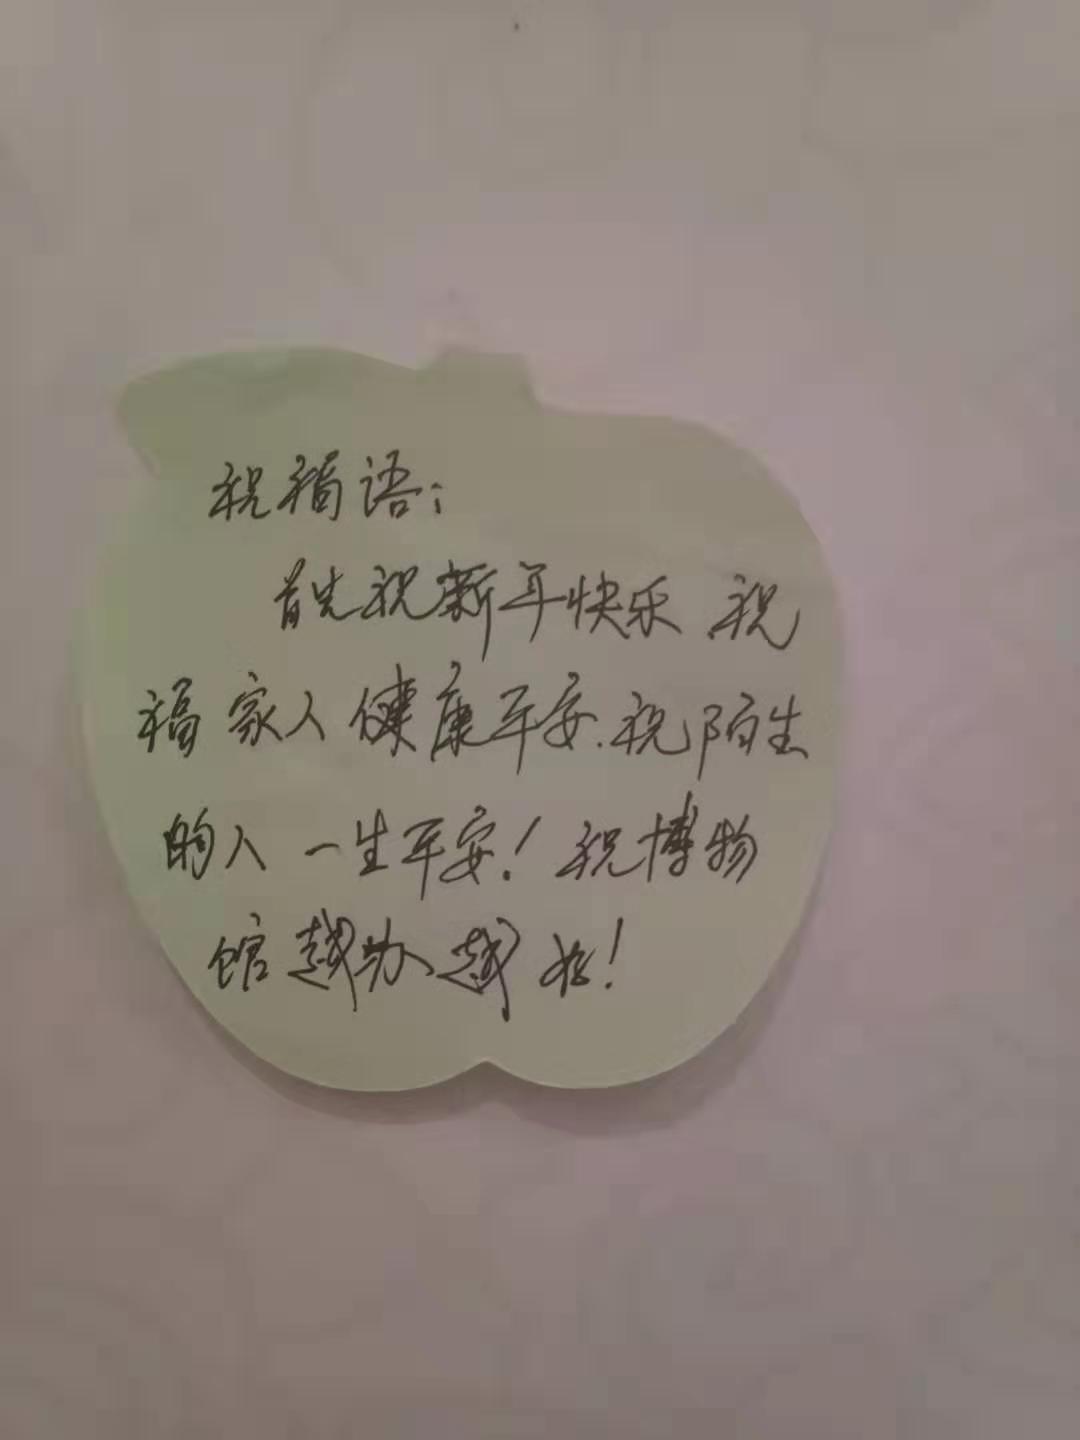 祝福语：
首先祝新年快乐 祝
福家人健康平安.祝陌生
的人一生平安！祝博物
馆越办越好！